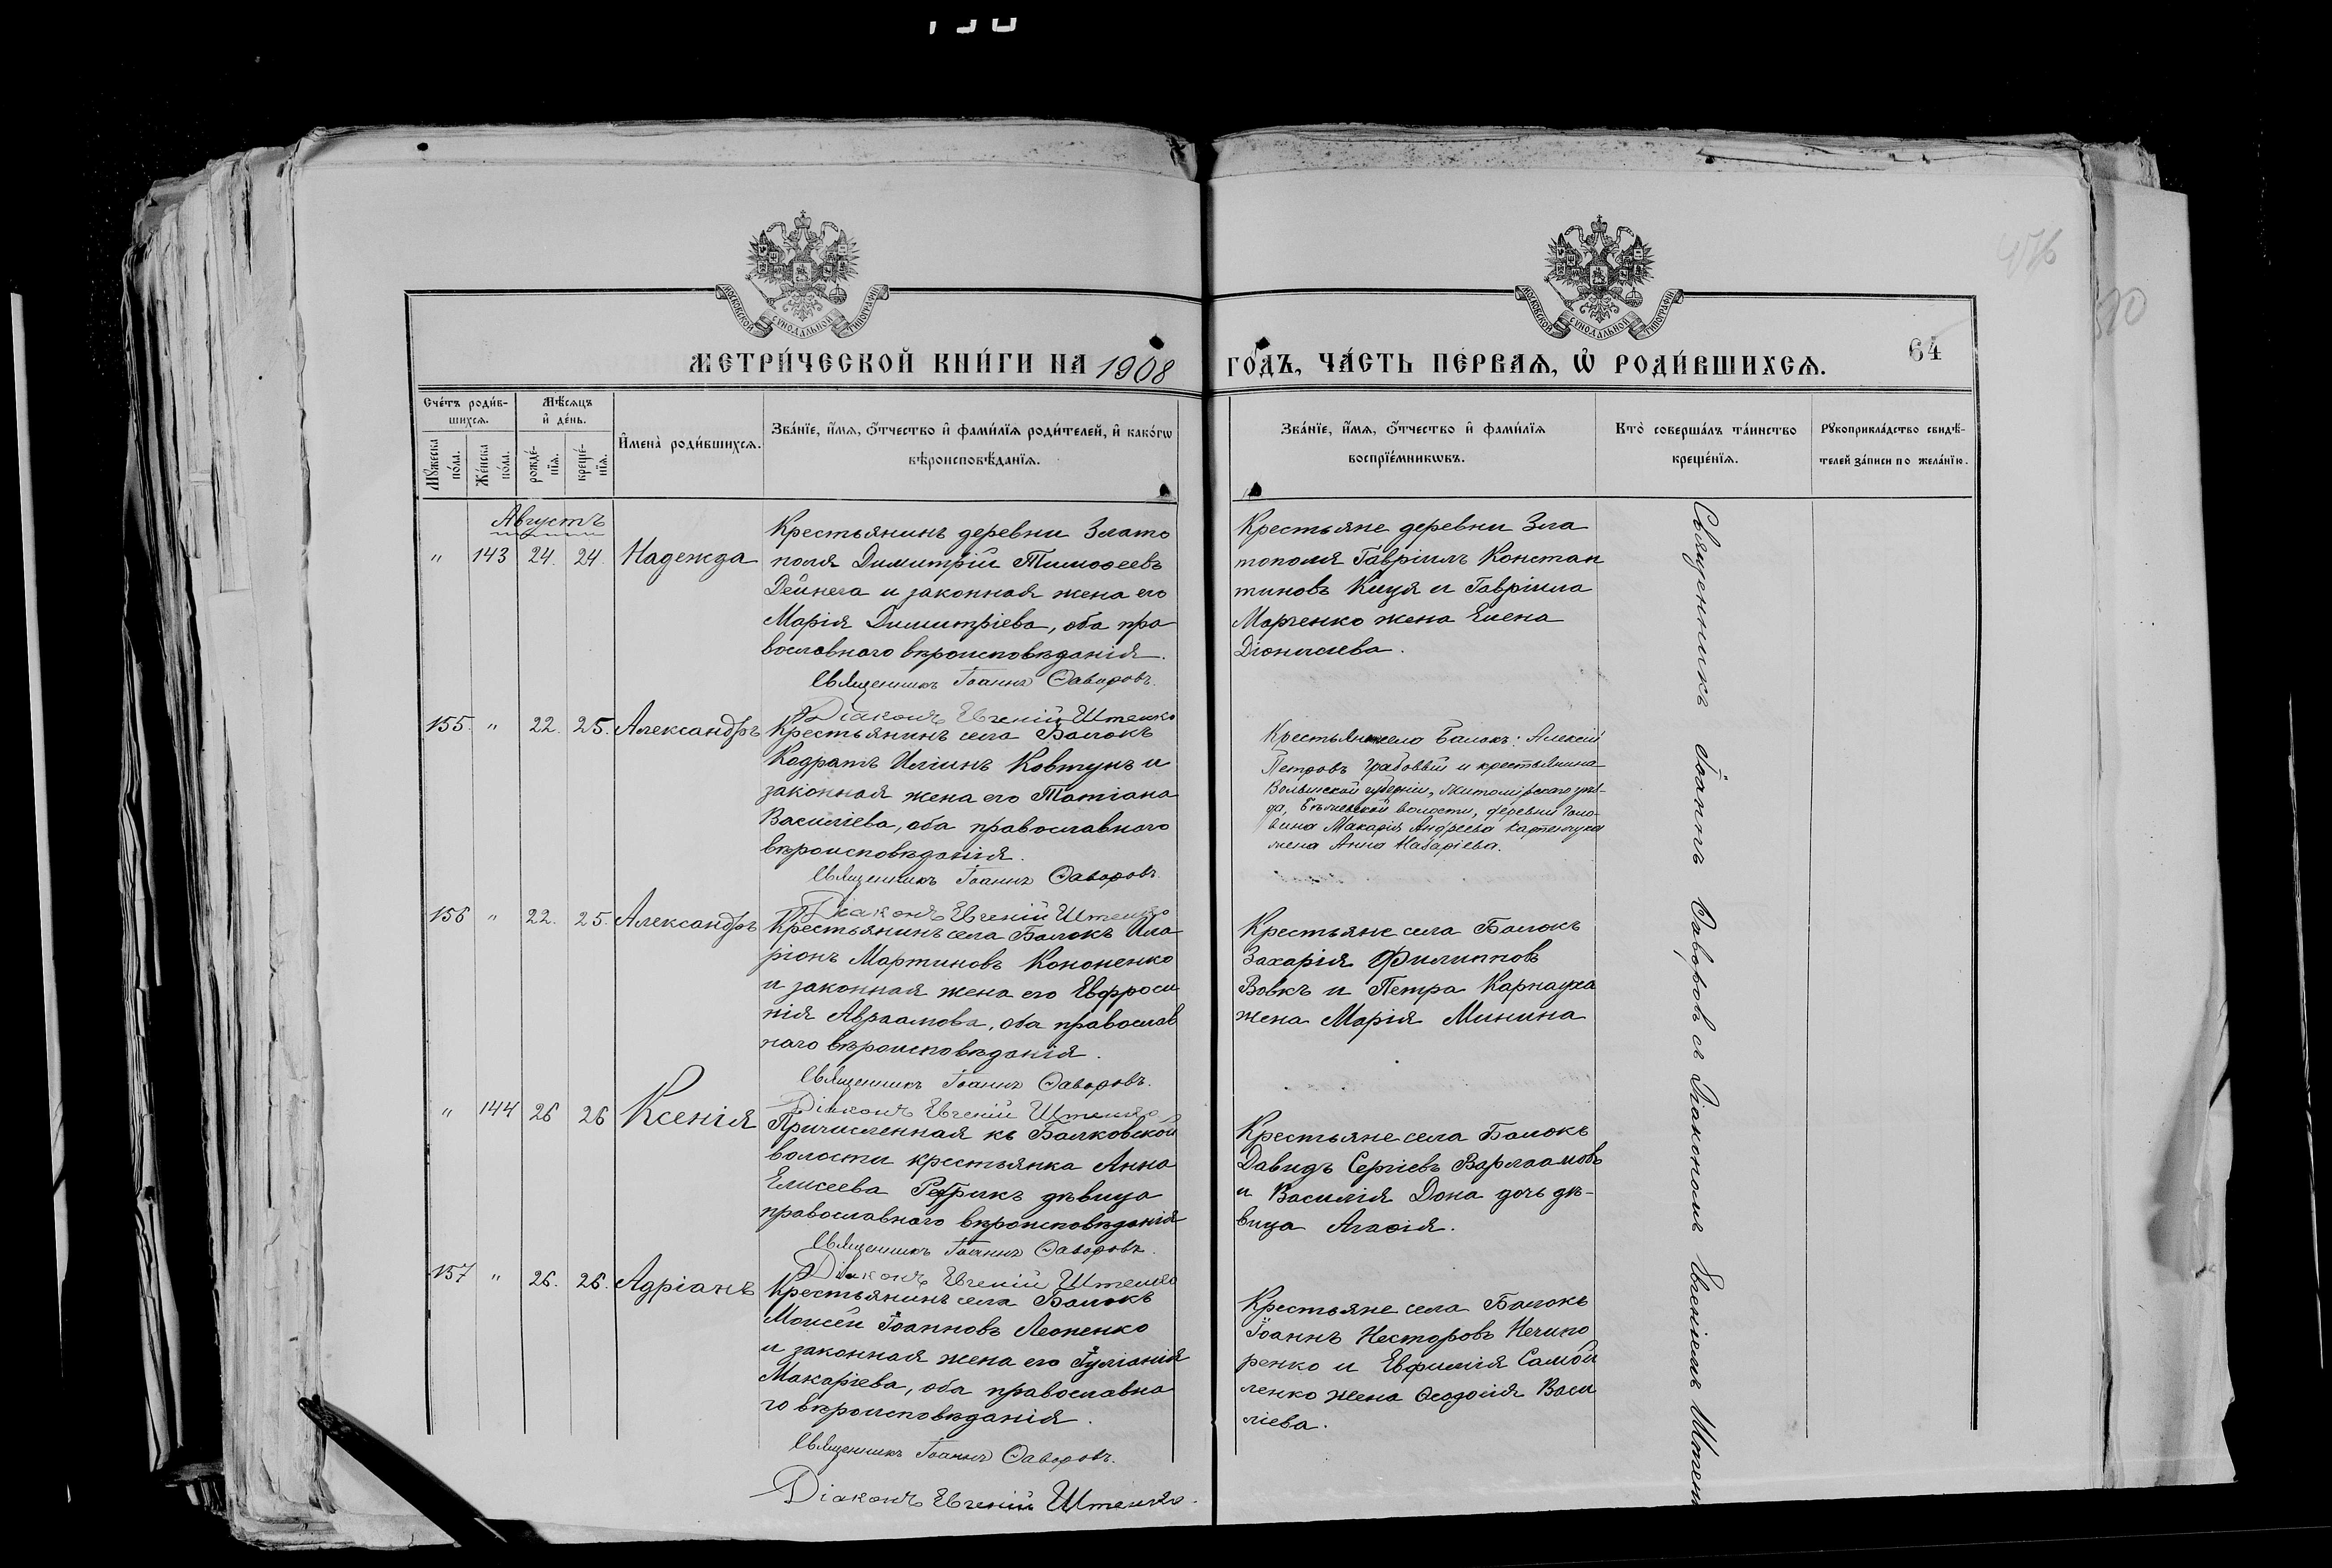 МОСКОВСКОЙ СУНОДАЛЬНОЙ ТИПОГРАФІИ
МОСКОВСКОЙ СУНОДАЛЬНОЙ ТИПОГРАФІИ
МЕТРИ́ЧЕСКОЙ КНИ́ГИ НА 1908
ГО́ДЪ, ЧА́СТЬ ПЕ́РВАѦ, Ѡ РОДИ́ВШИХСѦ.
64
Сче́тъ роди́в-
шихсѧ.
Мѣ́сѧцъ
и҆ де́нь.
Мꙋ́жеска
по́ла.
Же́нска
по́ла.
рожде́-
нїѧ.
креще́-
нїѧ.
И҆мена̀ роди́вшихсѧ.
Зва́нїе, и҆́мѧ, ѻ҆́тчество и҆ фами́лїѧ роди́телей, и҆ како́гѡ
вѣроисповѣ́данїѧ.
Зва́нїе, и҆́мѧ, ѻ҆́тчество и҆ фами́лїѧ
воспрїе́мникѡвъ.
Кто̀ соверша́лъ та́инство
креще́нїѧ.
Рꙋкоприкла́дство свидѣ́-
телей за́писи по жела́нїю.
Августъ
" 143 24. 24. Надежда
Крестьянинъ деревни Злато
поля Димитрій Тимоѳеевъ
Дейнега и законная жена его
Марія Димитріева, оба пра
вославнаго вѣроисповѣданія.
Священникъ Іоаннъ Ѳаворовъ.
Діаконъ Евгеній Штенко
Крестьяне деревни Зла
тополя Гавріилъ Констан
тиновъ Куця и Гавріила
Марченко жена Елена
Діонисіева.
155. " 22. 25. Александръ
Крестьянинъ села Балокъ
Кодратъ Иліинъ Ковтунъ и
законная жена его Татіана
Василіева, оба православнаго
вѣроисповѣданія.
Священникъ Іоаннъ Ѳаворовъ.
Діаконъ Евгеній Штенко
села Балокъ: Алексій
Петровъ Грабовый и крестьянина
Волынской губерніи, Житомірскаго уѣз-
да, волости, деревни Голо-
вина Макарія Андреева
жена Анна
156 " 22. 25. Александръ
Крестьянинъ села Балокъ Ила
ріонъ Мартиновъ Кононенко
и законная жена его Евфроси
нія Авраамова, оба православ
наго вѣроисповѣданія.
Священникъ Іоаннъ Ѳаворовъ.
Діаконъ Евгеній Штенко
Крестьяне села Балокъ
Захарія Филипповъ
Вовкъ и Петра Карнауха
жена Марія Минина
" 144 26 26 Ксенія
Причисленная къ Балковской
волости крестьянка Анна
Елисеева дѣвица
православнаго вѣроисповѣданія
Священникъ Іоаннъ Ѳаворовъ.
Діаконъ Евгеній Штенко
Крестьяне села Балокъ
Давидъ Сергіевъ Варлаамовъ
и Василія Дона дочь дѣ-
вица Агаѳія.
157 " 26. 26. Адріанъ
Крестьянинъ села Балокъ
Моисей Іоанновъ Леоненко
и законная жена его Іуліанія
Макаріева, оба православна
го вѣроисповѣданія.
Священникъ Іоаннъ Ѳаворовъ.
Діаконъ Евгеній Штенко.
Крестьяне села Балокъ
Іоаннъ Несторовъ Нечипо
ренко и Евфимія Самой
ленко жена Ѳеодосія Васи
ліева.
Священникъ Іоаннъ Ѳаворовъ съ Діакономъ Евгеніемъ